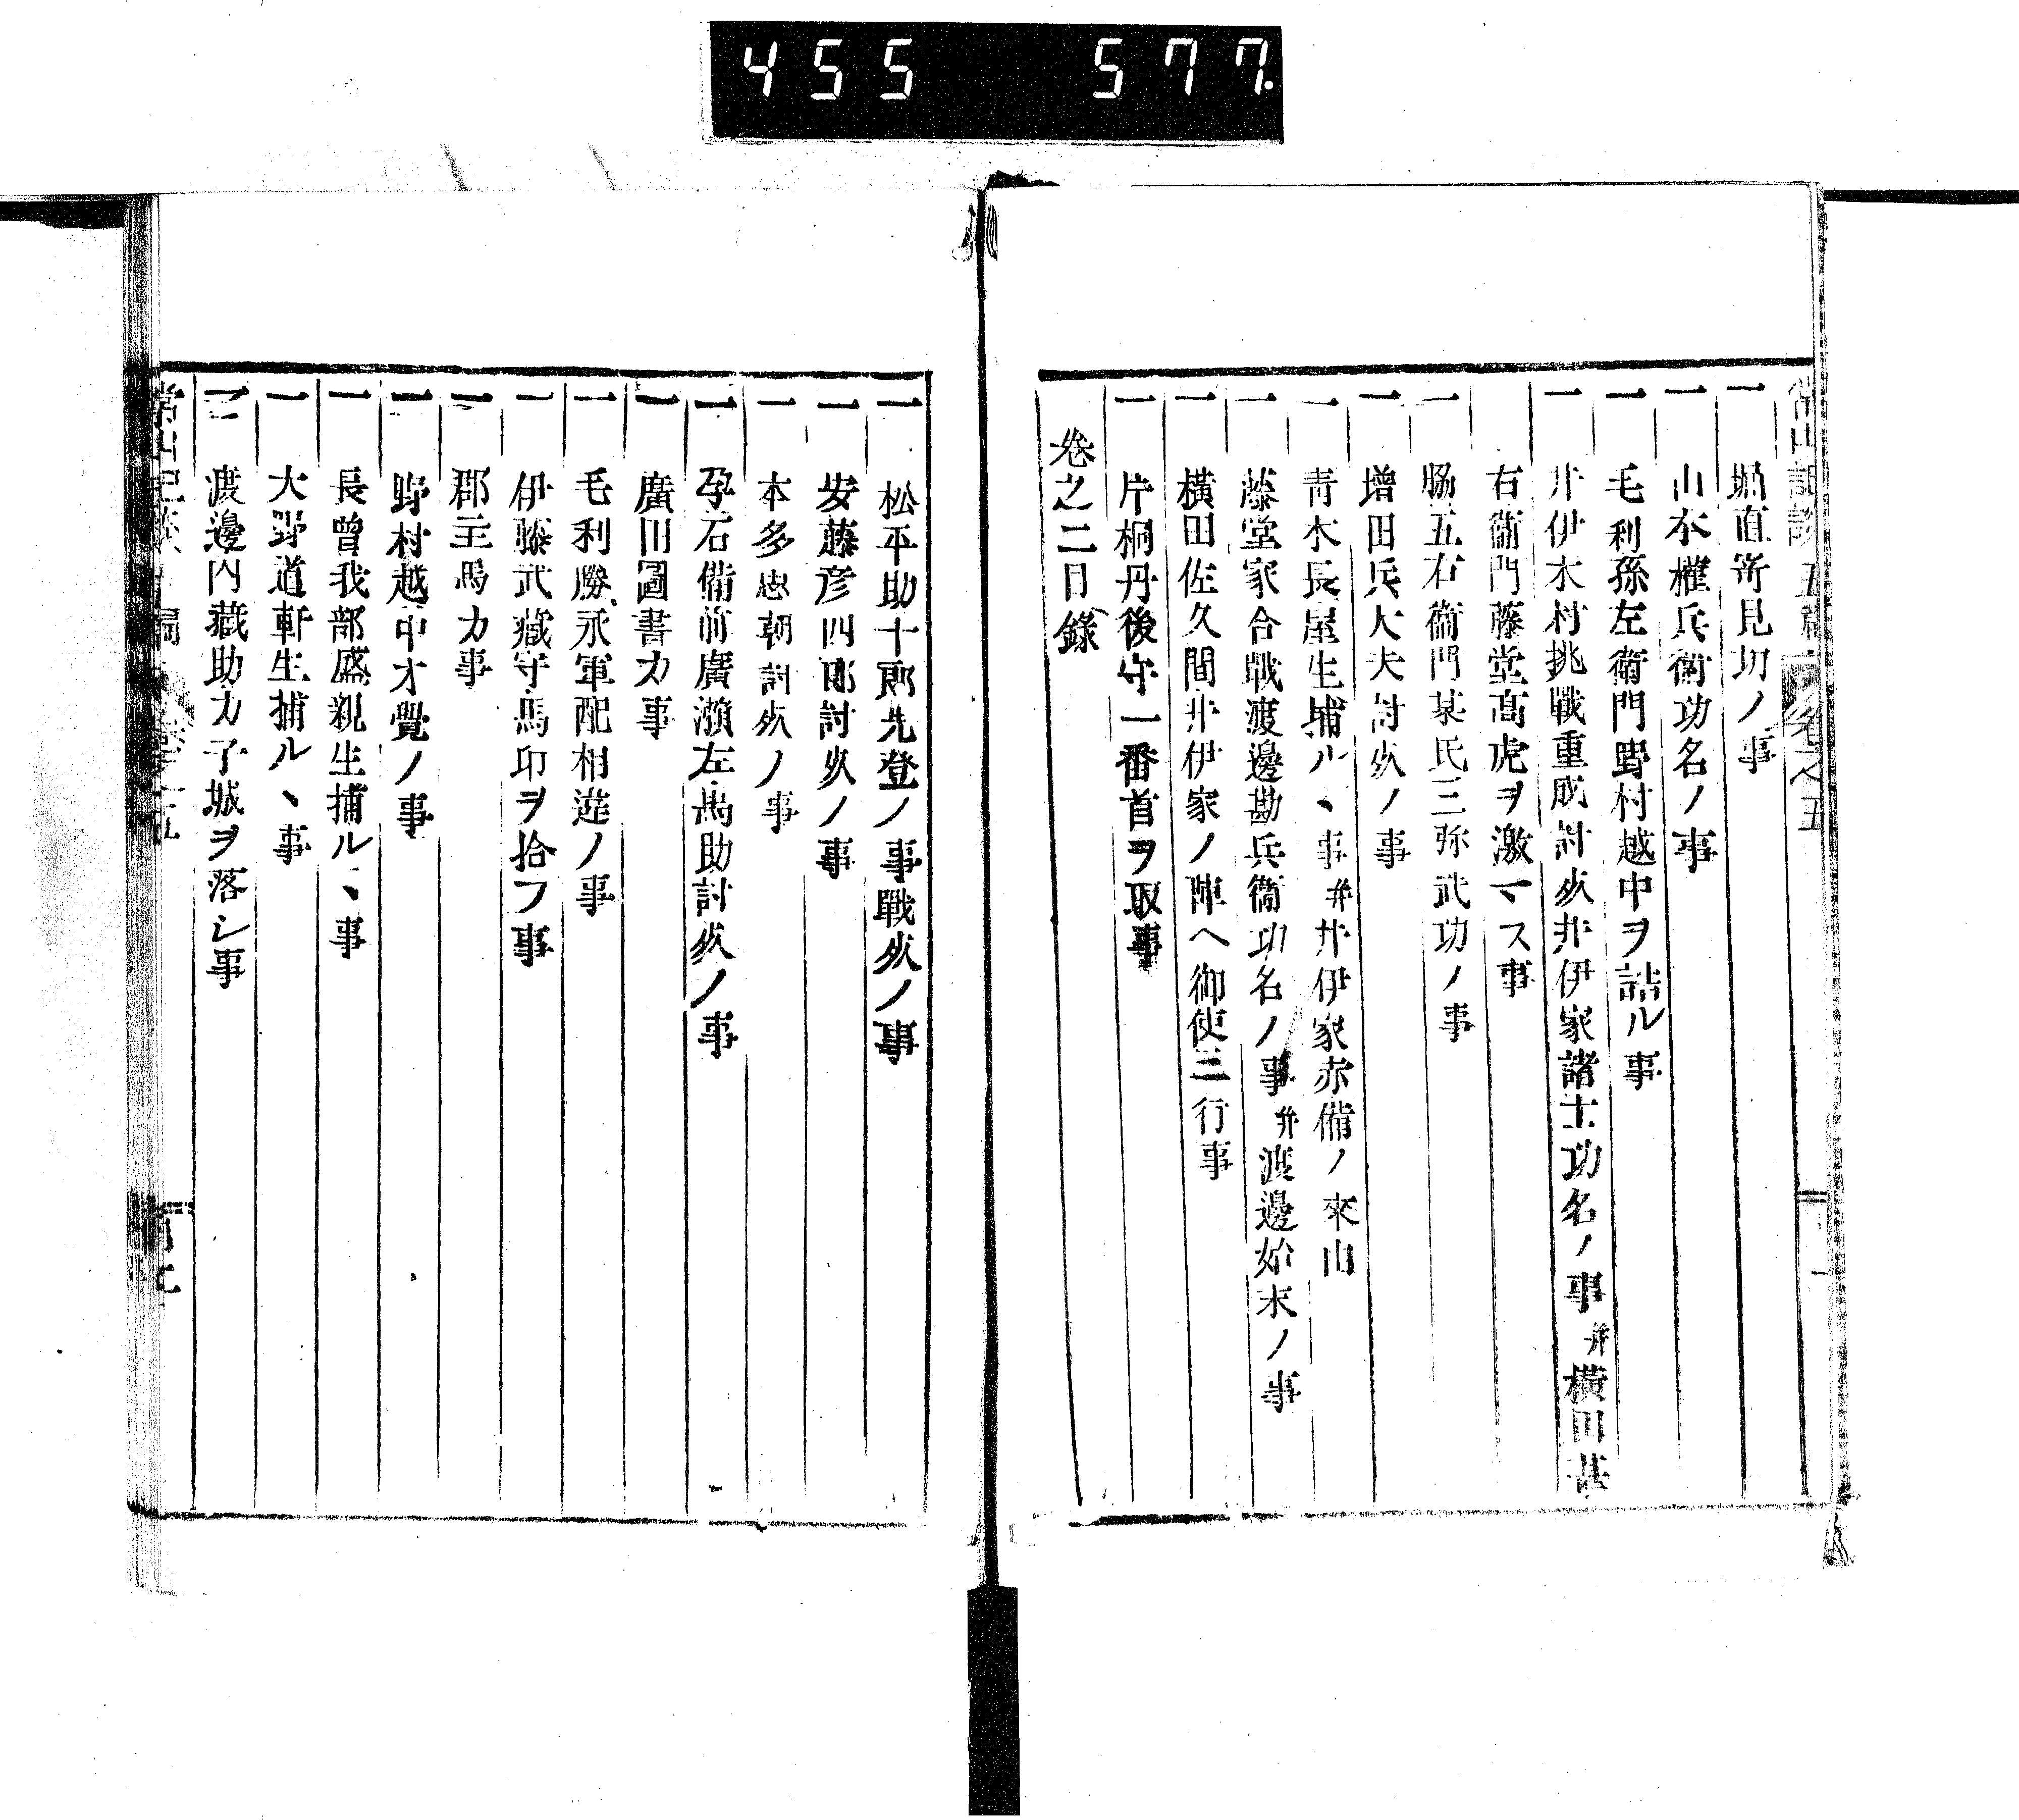 455 577.
一 堀直寄見切ノ事
一 山本權兵衞功名ノ事
一 毛利孫左衞門野村越中ヲ詰ル事
一 井伊木村挑戰重成討死井伊家諸士功名ノ事并橫田甚
右衞門藤堂高虎ヲ激マス事
一 脇五右衞門某氏三弥武功ノ事
一 增田兵大夫討死ノ事
一 青木長屋生捕ルヽ事并井伊家赤備ノ來由
一 藤堂家合戰渡邊勘兵衞功名ノ事并渡邊始末ノ事
一 橫田佐久間井伊家ノ陣ヘ御使ニ行事
一 片桐丹後守一番首ヲ取事
卷之二目錄
一 松平助十郎先登ノ事戰死ノ事
一 安藤彥四郎討死ノ事
一 本多忠朝討死ノ事
一 孕石備前廣瀨左馬助討死ノ事
一 廣田圖書カ事
一 毛利勝永軍配相違ノ事
一 伊藤武藏守馬印ヲ拾フ事
一 郡主馬カ事
一 野村越中才覺ノ事
一 長曾我部盛親生捕ルヽ事
一 大野道軒生捕ルヽ事
一 渡邊內藏助カ子城ヲ落シ事